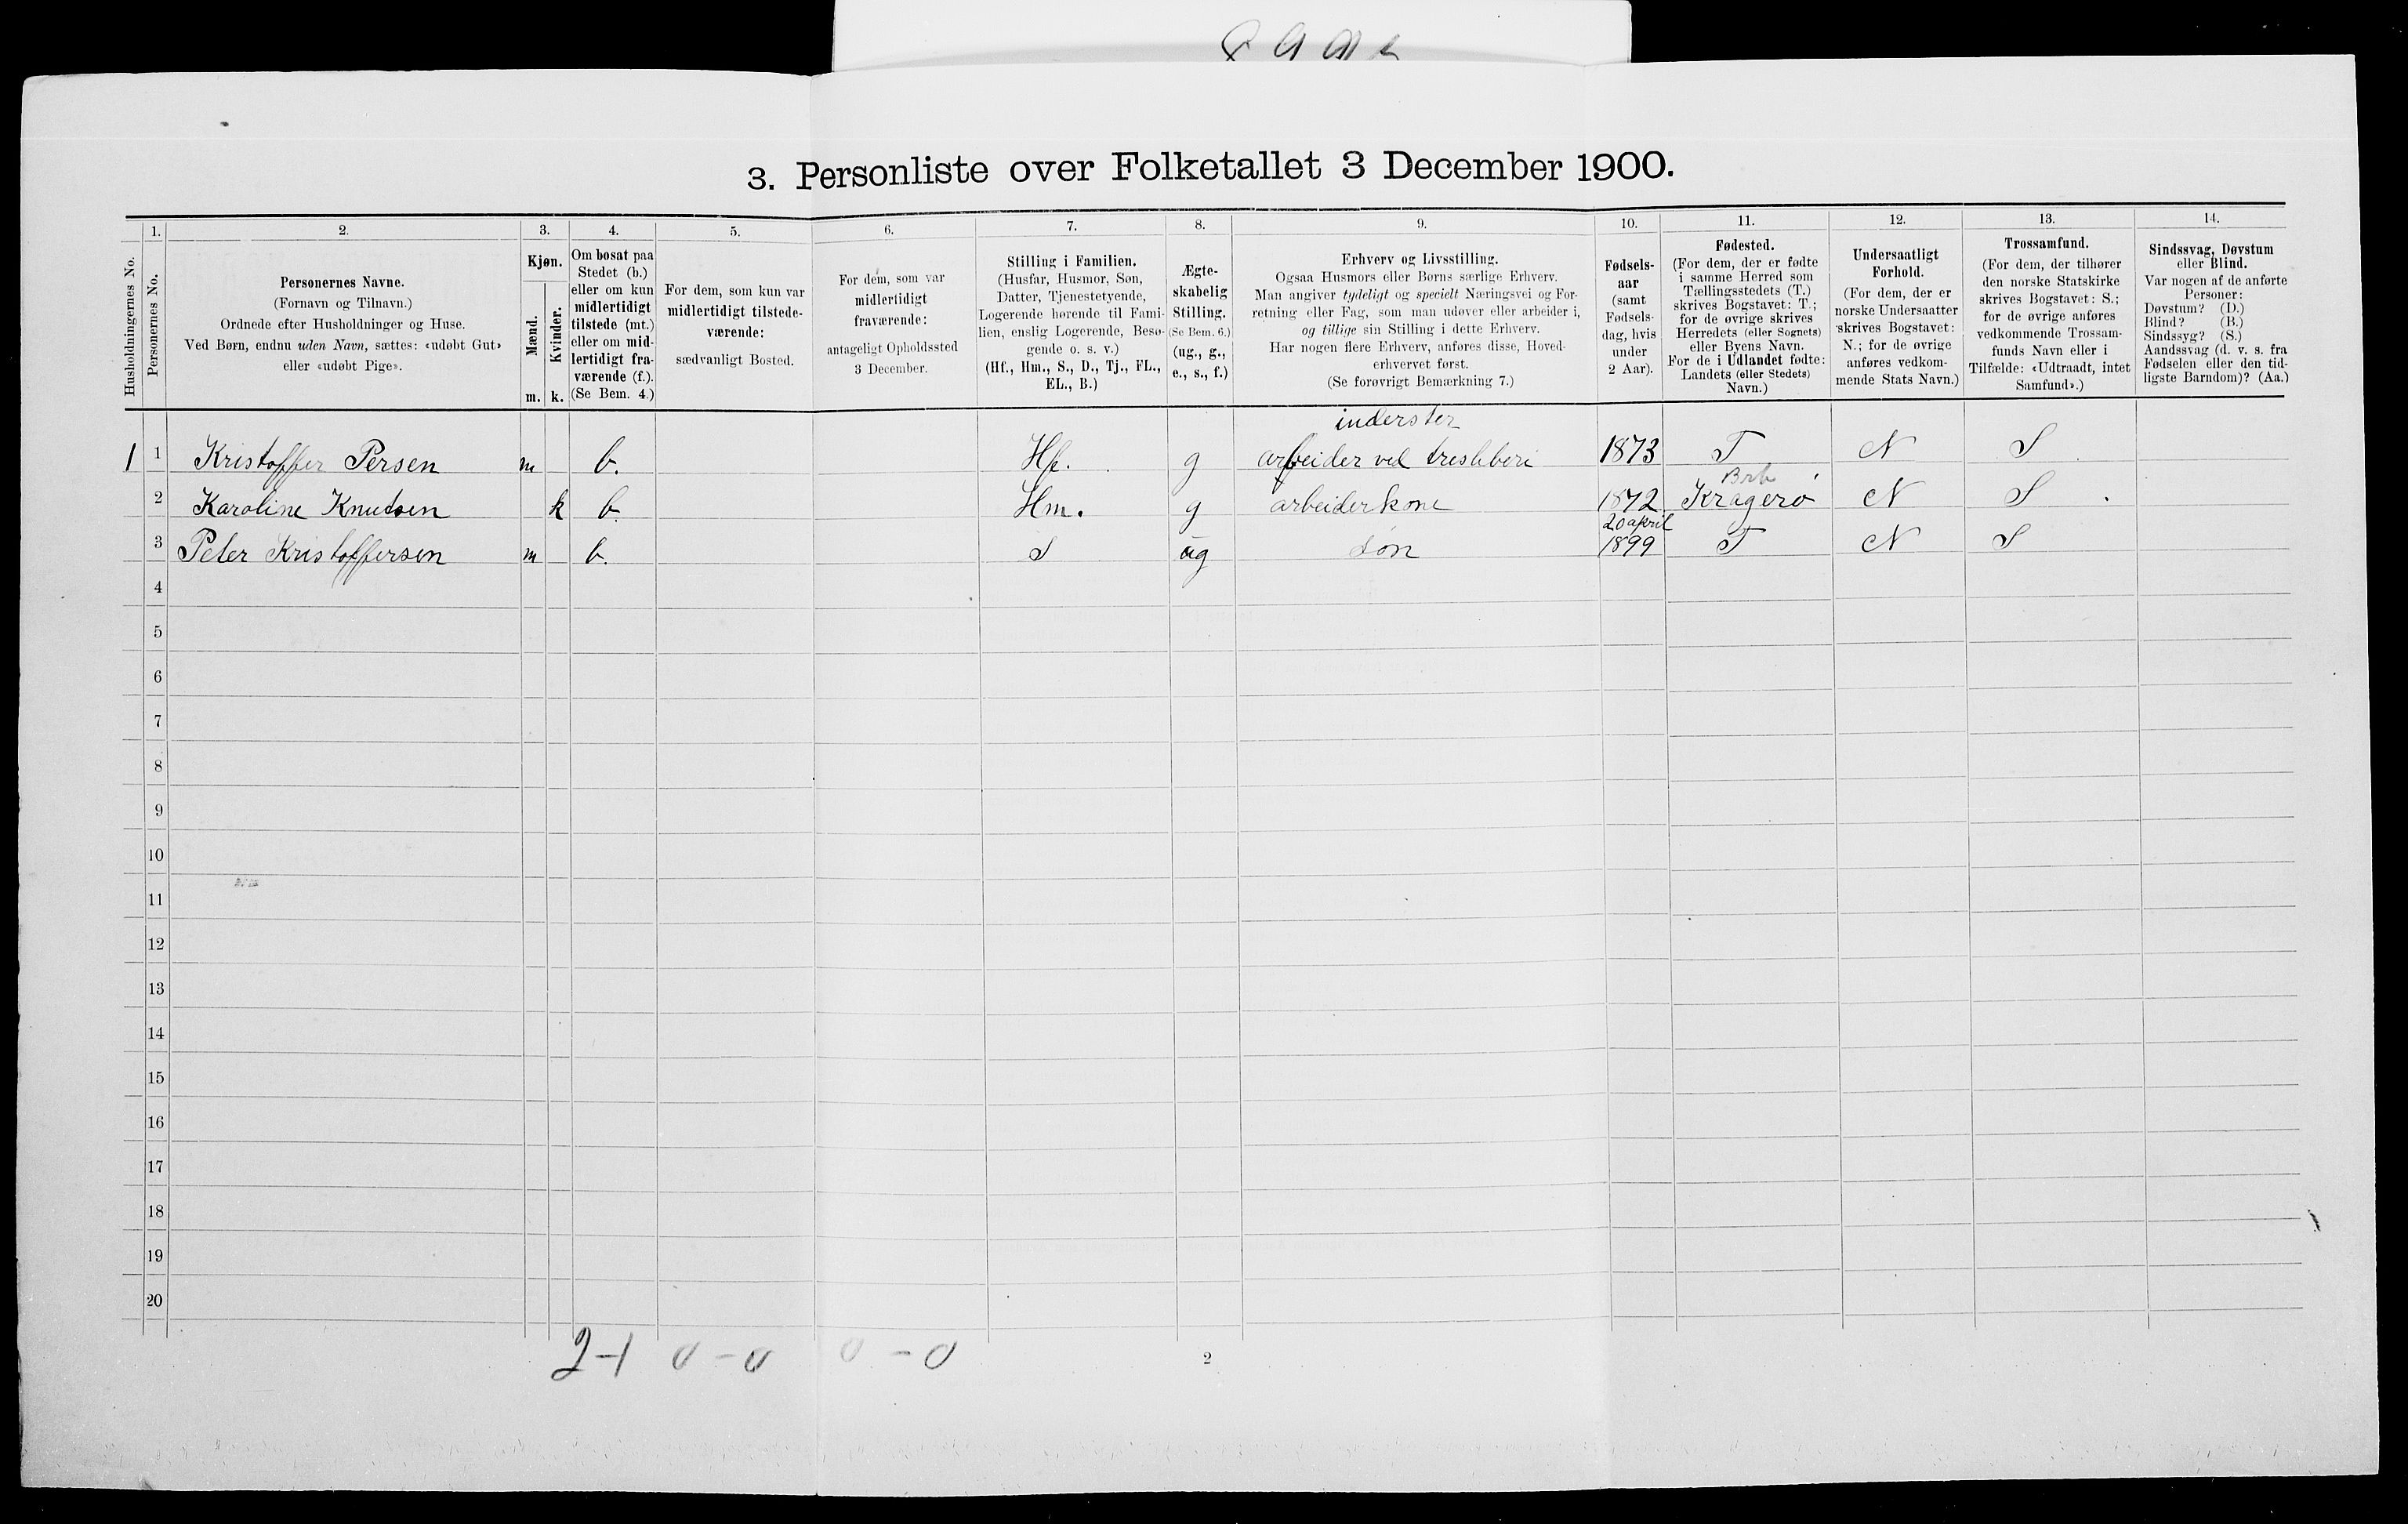 3. Personliste over Folketallet 3 December 1900.
1. 2. 3. 4. 5. 6. 7. 8. 9. 10. 11. 12. 13. 14.
Husholdningernes No.
Personernes No.
Personernes Navne.
(Fornavn og Tilnavn.)
Ordnede efter Husholdninger og Huse.
Ved Børn, endnu uden Navn, sættes: «udøbt Gut»
eller «udøbt Pige».
Kjøn.
Mænd.
Kvinder.
m. k.
Om bosat paa
Stedet (b.)
eller om kun
midlertidigt
tilstede (mt.)
eller om mid-
lertidigt fra-
værende (f.).
(Se Bem. 4.)
For dem, som kun var
midlertidigt tilstede-
værende:
sædvanligt Bosted.
For dem, som var
midlertidigt
fraværende:
antageligt Opholdssted
3 December.
Stilling i Familien.
(Husfar, Husmor, Søn,
Datter, Tjenestetyende,
Logerende hørende til Fami-
lien, enslig Logerende, Besø-
gende o. s. v.)
(Hf., Hm., S., D., Tj., FL.,
EL., B.)
Ægte-
skabelig
Stilling.
(Se Bem. 6.)
(ug., g.,
e., s., f.)
Erhverv og Livsstilling.
Ogsaa Husmors eller Børns særlige Erhverv.
Man angiver tydeligt og specielt Næringsvei og For-
retning eller Fag, som man udøver eller arbeider i,
og tillige sin Stilling i dette Erhverv.
Har nogen flere Erhverv, anføres disse, Hoved-
erhvervet først.
(Se forøvrigt Bemærkning 7.)
Fødsels-
aar
(samt
Fødsels-
dag, hvis
under
2 Aar).
Fødested.
(For dem, der er fødte
i samme Herred som
Tællingsstedets (T.)
skrives Bogstavet: T.;
for de øvrige skrives
Herredets (eller Sognets)
eller Byens Navn.
For de i Udlandet fødte:
Landets (eller Stedets)
Navn.)
Undersaatligt
Forhold.
(For dem, der er
norske Undersaatter
skrives Bogstavet:
N.; for de øvrige
anføres vedkom-
mende Stats Navn.)
Trossamfund.
(For dem, der tilhører
den norske Statskirke
skrives Bogstavet: S.;
for de øvrige anføres
vedkommende Trossam-
funds Navn eller i
Tilfælde: «Udtraadt, intet
Samfund».)
Sindssvag, Døvstum
eller Blind.
Var nogen af de anførte
Personer:
Døvstum? (D.)
Blind? (B.)
Sindssyg? (S.)
Aandssvag (d. v. s. fra
Fødselen eller den tid-
ligste Barndom)? (Aa.)
inderster
1 1 Kristoffer Persen m b. Hf. g arbeider ved 1873 T N S
2 Karoline Knutsen k b. Hm. g arbeiderkone 1872 Kragerø N S
20 april
3 Peter Kristoffersen m b. S ug søn 1899 T N S
4
5
6
7
8
9
10
11
12
13
14
15
16
17
18
19
20
2-1 0-0 0-0
2